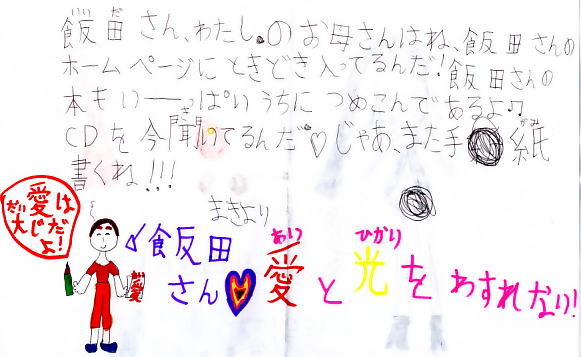 飯田さん、わたしのお母さんはね、飯田さんの
ホームページにときどき入ってるんだ!飯田さんの
本もいーっぱいうちにつめこんであるよ♫
CDを今聞いてるんだ♡じゃあ、また手紙
書くね!!!
まきより
愛は
大じだ
よ!
愛
飯田
さん
愛と光をわすれない!